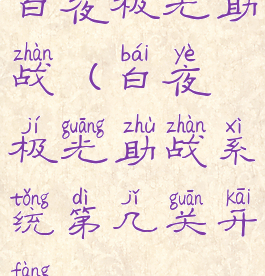 白夜极光助
zhàn bái yè
战（白夜
jí guāng zhù zhàn xì
极光助战系
tǒng dì jǐ guān kāi
统第几关开
fàng